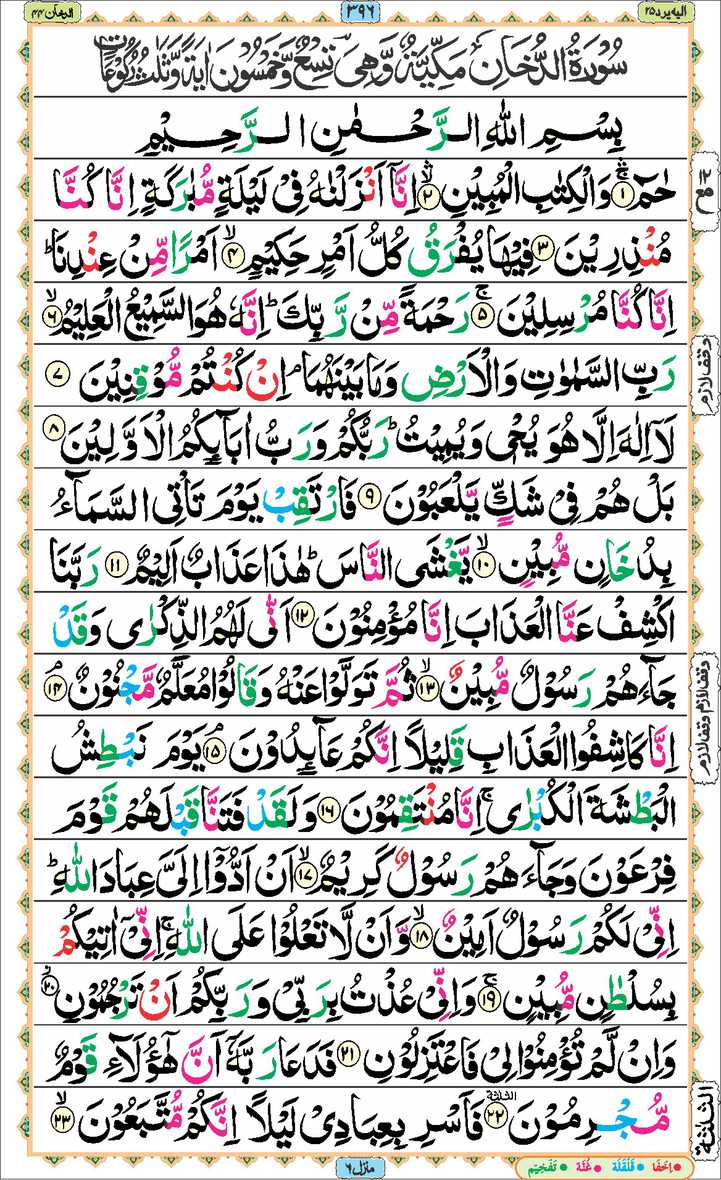 اليه يرد ٢٥
٣٩٦
الدخان ٤٤
سُوْرَةُ الدُّخَانِ مَكِّيَّةٌ وَّهِيَ تِسْعٌ وَّخَمْسُوْنَ اٰيَةً وَّثَلٰثُ رُكُوْعَاتٍ
بِسْمِ اللّٰهِ الرَّحْمٰنِ الرَّحِيْمِ
حٰمٓ ۛۚ ١ وَالْكِتٰبِ الْمُبِيْنِ ۛۙ ٢ اِنَّاۤ اَنْزَلْنٰهُ فِيْ لَيْلَةٍ مُّبٰرَكَةٍ اِنَّا كُنَّا
مُنْذِرِيْنَ ٣ فِيْهَا يُفْرَقُ كُلُّ اَمْرٍ حَكِيْمٍ ۙ ٤ اَمْرًا مِّنْ عِنْدِنَا ؕ
اِنَّا كُنَّا مُرْسِلِيْنَ ۚ ٥ رَحْمَةً مِّنْ رَّبِّكَ ؕ اِنَّهٗ هُوَ السَّمِيْعُ الْعَلِيْمُ ۙ ٦
رَبِّ السَّمٰوٰتِ وَالْاَرْضِ وَمَا بَيْنَهُمَا ۘ اِنْ كُنْتُمْ مُّوْقِنِيْنَ ٧
لَاۤ اِلٰهَ اِلَّا هُوَ يُحْيٖ وَيُمِيْتُ ؕ رَبُّكُمْ وَرَبُّ اٰبَآئِكُمُ الْاَوَّلِيْنَ ٨
بَلْ هُمْ فِيْ شَكٍّ يَّلْعَبُوْنَ ٩ فَارْتَقِبْ يَوْمَ تَاْتِى السَّمَآءُ
بِدُخَانٍ مُّبِيْنٍ ۙ ١٠ يَّغْشَى النَّاسَ ؕ هٰذَا عَذَابٌ اَلِيْمٌ ١١ رَبَّنَا
اكْشِفْ عَنَّا الْعَذَابَ اِنَّا مُؤْمِنُوْنَ ١٢ اَنّٰى لَهُمُ الذِّكْرٰى وَقَدْ
جَآءَهُمْ رَسُوْلٌ مُّبِيْنٌ ۙ ١٣ ثُمَّ تَوَلَّوْا عَنْهُ وَقَالُوْا مُعَلَّمٌ مَّجْنُوْنٌ ۘ ١٤
اِنَّا كَاشِفُوا الْعَذَابِ قَلِيْلًا اِنَّكُمْ عَآئِدُوْنَ ۘ ١٥ يَوْمَ نَبْطِشُ
الْبَطْشَةَ الْكُبْرٰى ۚ اِنَّا مُنْتَقِمُوْنَ ١٦ وَلَقَدْ فَتَنَّا قَبْلَهُمْ قَوْمَ
فِرْعَوْنَ وَجَآءَهُمْ رَسُوْلٌ كَرِيْمٌ ۙ ١٧ اَنْ اَدُّوْۤا اِلَيَّ عِبَادَ اللّٰهِ ؕ
اِنِّيْ لَكُمْ رَسُوْلٌ اَمِيْنٌ ۙ ١٨ وَّاَنْ لَّا تَعْلُوْا عَلَى اللّٰهِ ۚ اِنِّيْۤ اٰتِيْكُمْ
بِسُلْطٰنٍ مُّبِيْنٍ ۚ ١٩ وَاِنِّيْ عُذْتُ بِرَبِّيْ وَرَبِّكُمْ اَنْ تَرْجُمُوْنِ ۙ ٢٠
وَاِنْ لَّمْ تُؤْمِنُوْا لِيْ فَاعْتَزِلُوْنِ ٢١ فَدَعَا رَبَّهٗۤ اَنَّ هٰۤؤُلَآءِ قَوْمٌ
مُّجْرِمُوْنَ ٢٢ الثلثة فَاَسْرِ بِعِبَادِيْ لَيْلًا اِنَّكُمْ مُّتَّبَعُوْنَ ۙ ٢٣
١٢ مع
وقف لازم
وقف لازم وقف لازم
الثلثة
منزل ٦
اِخفَا قَلْقَلَة غُنَّه تَفْخِيْم